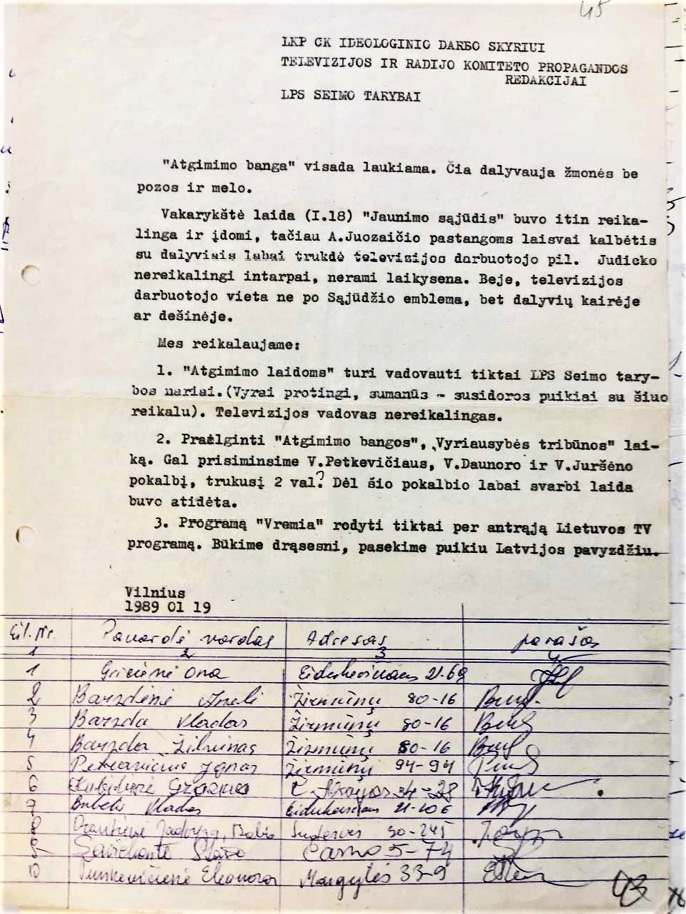 45
LKP CK IDEOLOGINIO DARBO SKYRIUI
TELEVIZIJOS IR RADIJO KOMITETO PROPAGANDOS
REDAKCIJAI
LPS SEIMO TARYBAI
"Atgimimo banga" visada laukiama. Čia dalyvauja žmonės be
pozos ir melo.
Vakarykštė laida (I.18) "Jaunimo sąjūdis" buvo itin reika-
linga ir įdomi, tačiau A.Juozaičio pastangoms laisvai kalbėtis
su dalyviais labai trukdė televizijos darbuotojo pil. Judicko
nereikalingi intarpai, nerami laikysena. Beje, televizijos
darbuotojo vieta ne po Sąjūdžio emblema, bet dalyvių kairėje
ar dešinėje.
Mes reikalaujame:
1. "Atgimimo laidoms" turi vadovauti tiktai LPS Seimo tary-
bos nariai.(Vyrai protingi, sumanūs - susidoros puikiai su šiuo
reikalu). Televizijos vadovas nereikalingas.
2. Prailginti "Atgimimo bangos", "Vyriausybės tribūnos" lai-
ką. Gal prisiminsime V.Petkevičiaus, V.Daunoro ir V.Juršėno
pokalbį, trukusį 2 val? Dėl šio pokalbio labai svarbi laida
buvo atidėta.
3. Programą "Vremia" rodyti tiktai per antrąją Lietuvos TV
programą. Būkime drąsesni, pasekime puikiu Latvijos pavyzdžiu.
Vilnius
1989 01 19
Eil. Nr. Pavardė vardas Adresas parašas
1 2 3 4
1 Gricienė Ona 21-69
2 Barzdėnė Žirmūnų 80-16
3 Barzda Vladas Žirmūnų 80-16
4 Barzda Žilvinas Žirmūnų 80-16
5 Žirmūnų 94-94
6 34-28
9 Vladas 21-106
8 50-245
9 5-74
10 Eleonora Margytės 33-9
43